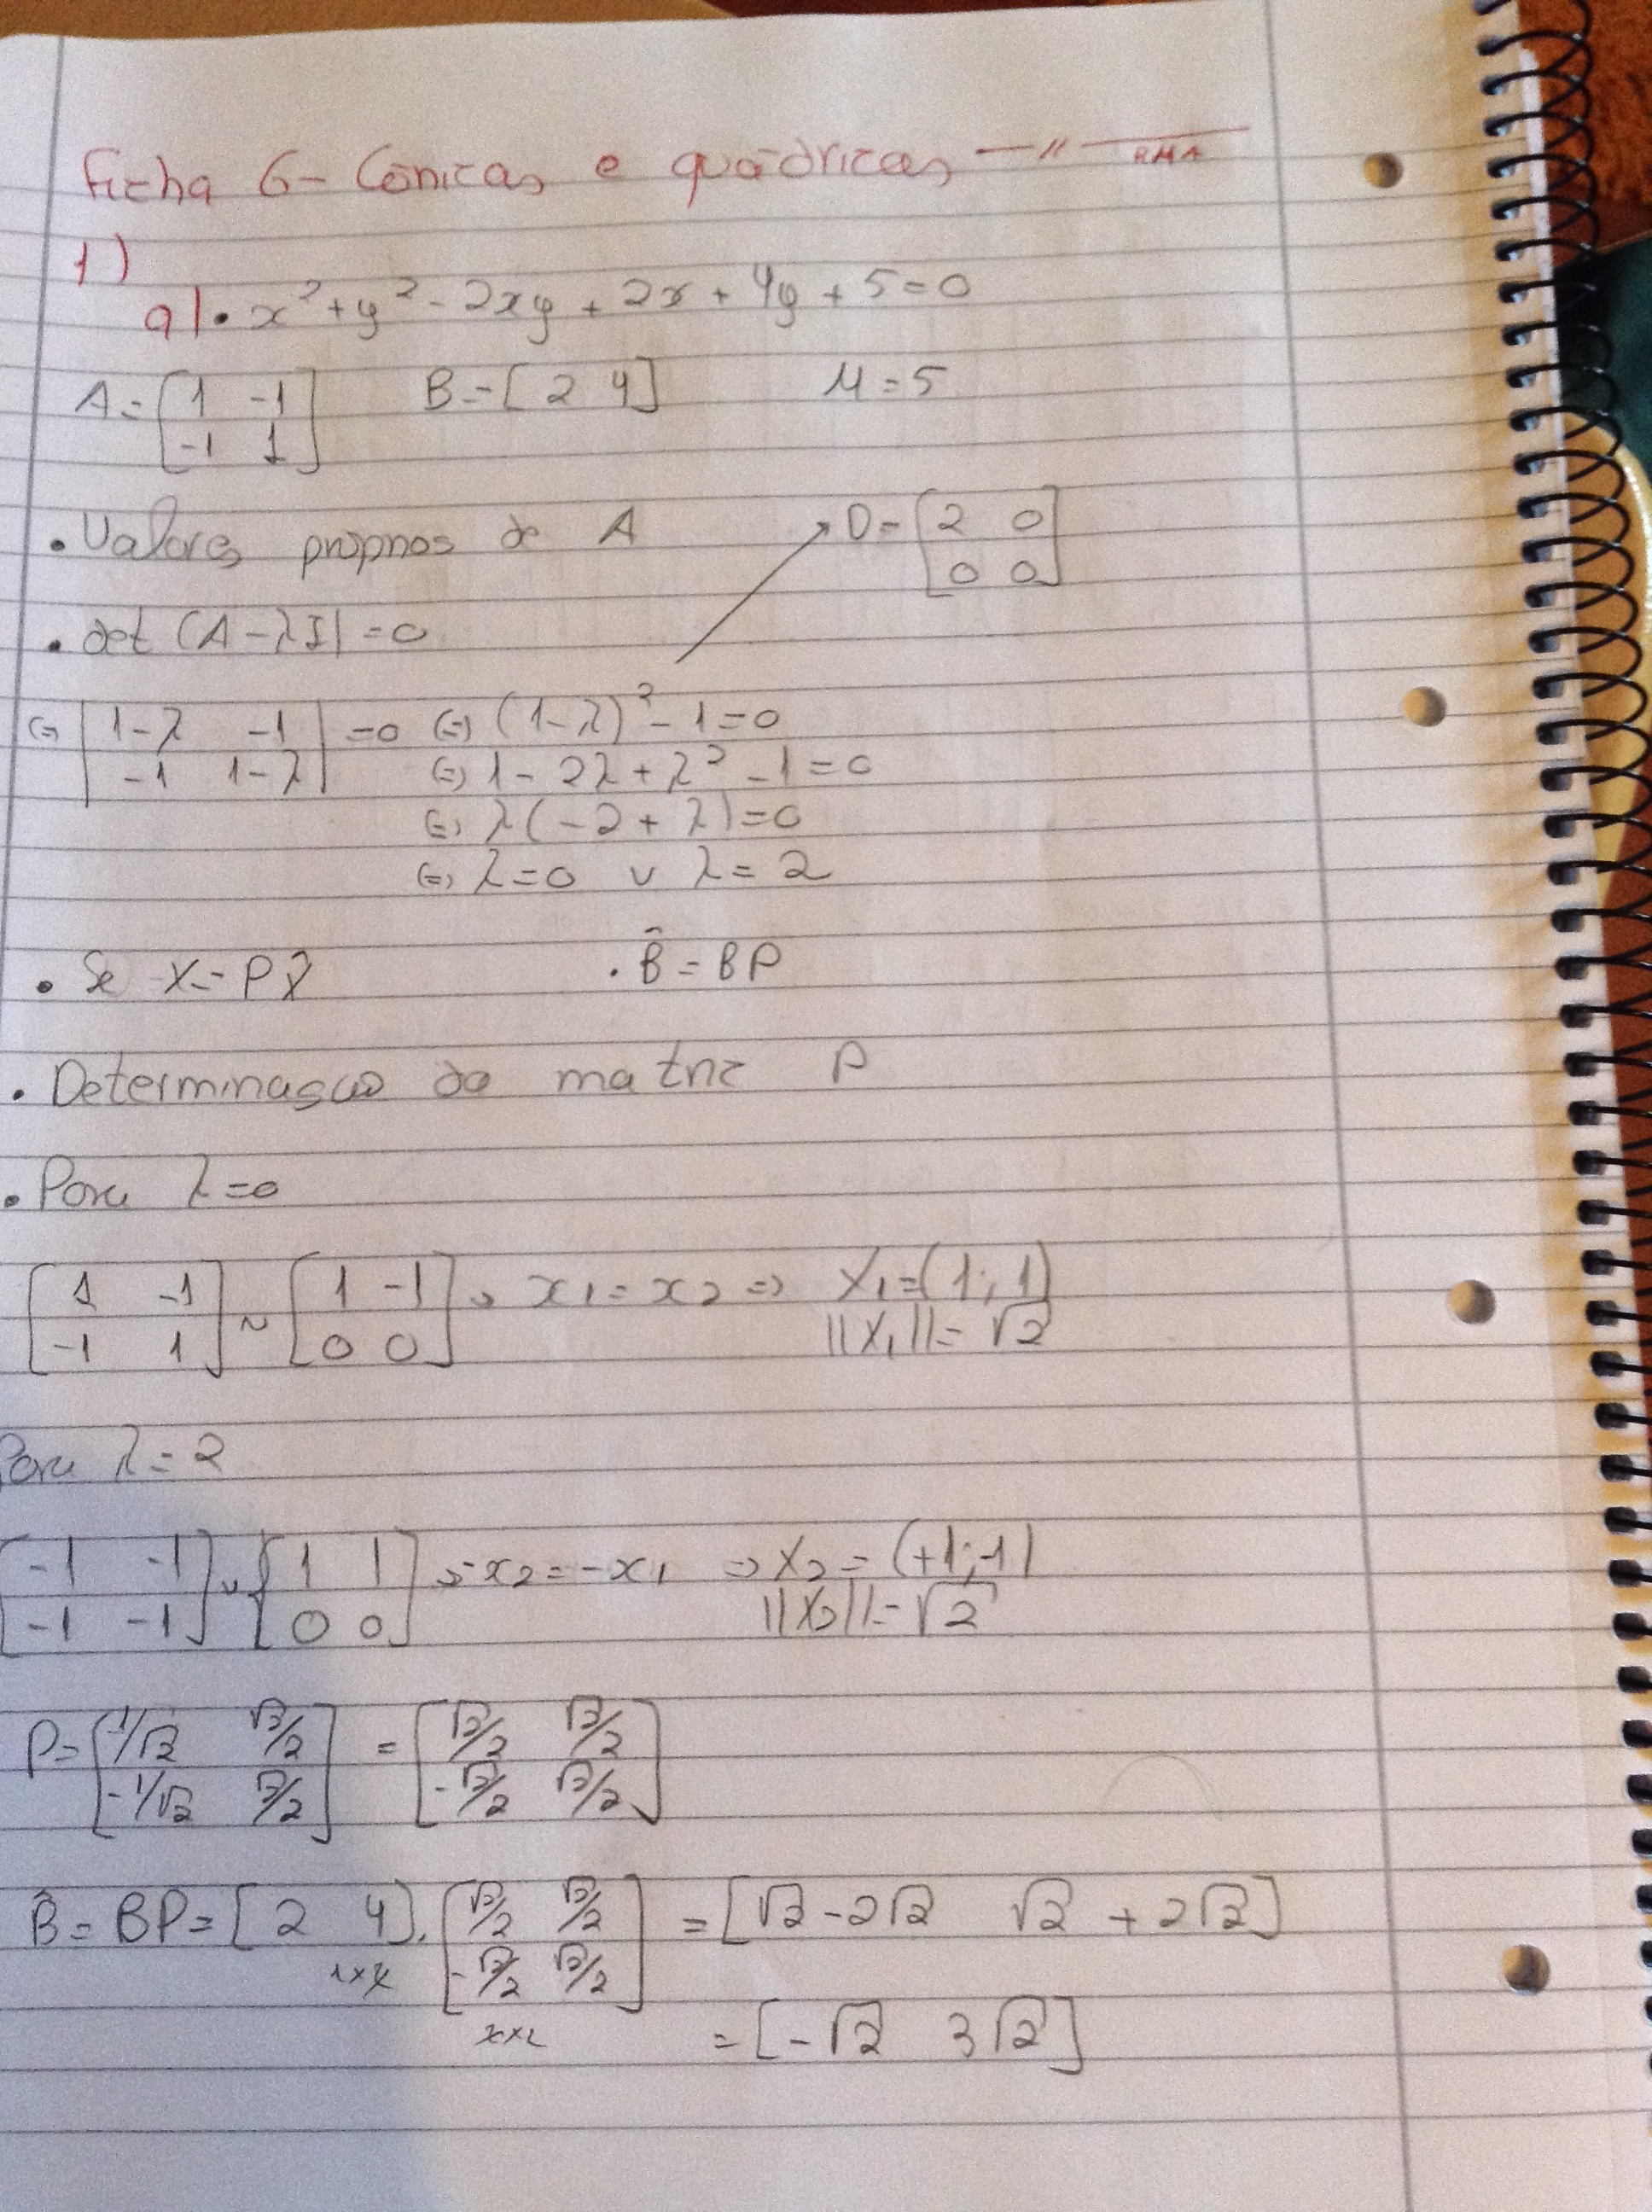 Ficha 6 - Cônicas e quádricas — " — RMA
1)
a) • x² + y² - 2xy + 2x + 4y + 5 = 0
A = [1 -1; -1 1] B = [2 4] M = 5
• Valores próprios de A → D = [2 0; 0 0]
• det (A - λI) = 0
(=) |1-λ -1; -1 1-λ| = 0 (=) (1-λ)² - 1 = 0
(=) 1 - 2λ + λ² - 1 = 0
(=) λ(-2 + λ) = 0
(=) λ = 0 ∨ λ = 2
• Se X = PX̂ • B̂ = BP
• Determinação da matriz P
• Para λ = 0
[1 -1; -1 1] ~ [1 -1; 0 0] → x1 = x2 => X1 = (1; 1)
||X1|| = √2
Para λ = 2
[-1 -1; -1 -1] ~ [1 1; 0 0] → x2 = -x1 => X2 = (+1; -1)
||X2|| = √2
P = [1/√2 √2/2; -1/√2 √2/2] = [√2/2 √2/2; -√2/2 √2/2]
B̂ = BP = [2 4] . [√2/2 √2/2; -√2/2 √2/2] = [√2 - 2√2 √2 + 2√2]
= [-√2 3√2]